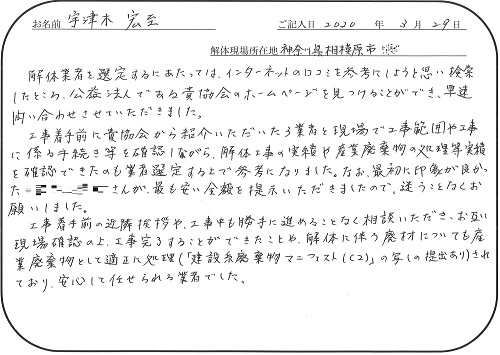 お名前 宇津木 宏至 ご記入日 2020 年 3 月 29 日
解体現場所在地 神奈川県相模原市
解体業者を選定するにあたっては、インターネットの口コミを参考にしようと思い検索
したところ、公益法人である貴協会のホームページを見つけることができ、早速
問い合わせさせていただきました。
工事着手前に貴協会から紹介いただいた3業者を現場で工事範囲や工事
に係る手続き等を確認しながら、解体工事の実績や産業廃棄物の処理等実績
を確認できたのも業者選定する上で参考になりました。なお、最初に印象が良かっ
た さんが、最も安い金額を提示いただきましたので、迷うことなくお
願いしました。
工事着手前の近隣挨拶や、工事中も勝手に進めることなく相談いただき、お互い
現場確認の上、工事完了することができたことや、解体に伴う廃材についても産
業廃棄物として適正に処理(「建設系廃棄物マニフェスト(C2)」の写しの提出あり)され
ており、安心して任せられる業者でした。